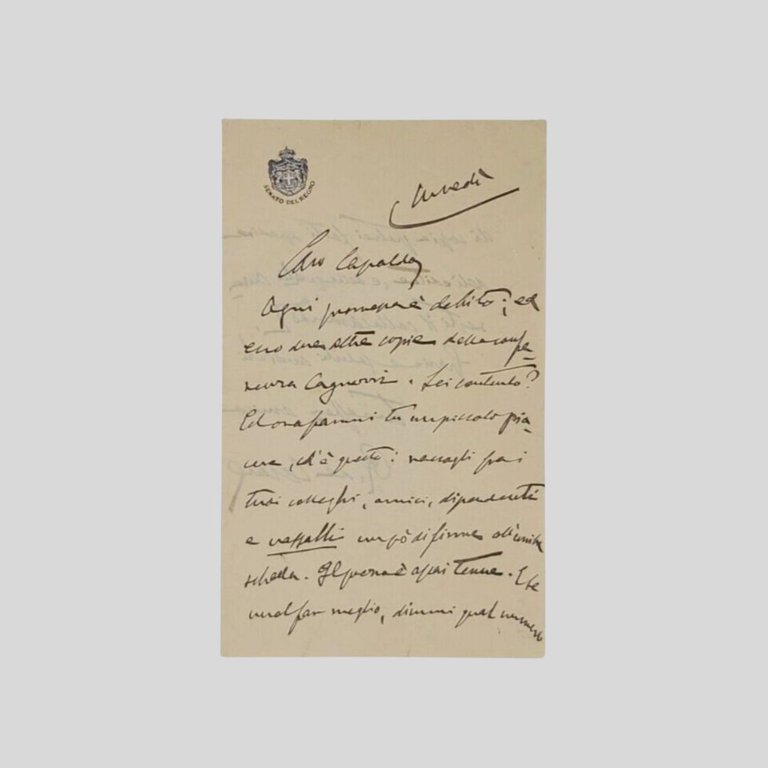 SENATO DEL REGNO
Caro Capaldo
Ogni promessa è debito; ed
altre copie della confe-
renza Cagnassi. Sei contento?
Ed ora fammi tu un piccolo pia-
cere, ed è questo: raccogli fra i
tuoi colleghi, amici, dipendenti
e vassalli un pò di firme all'unita
scheda. Il prezzo è assai tenue. E se
vuol far meglio, dimmi qual numero